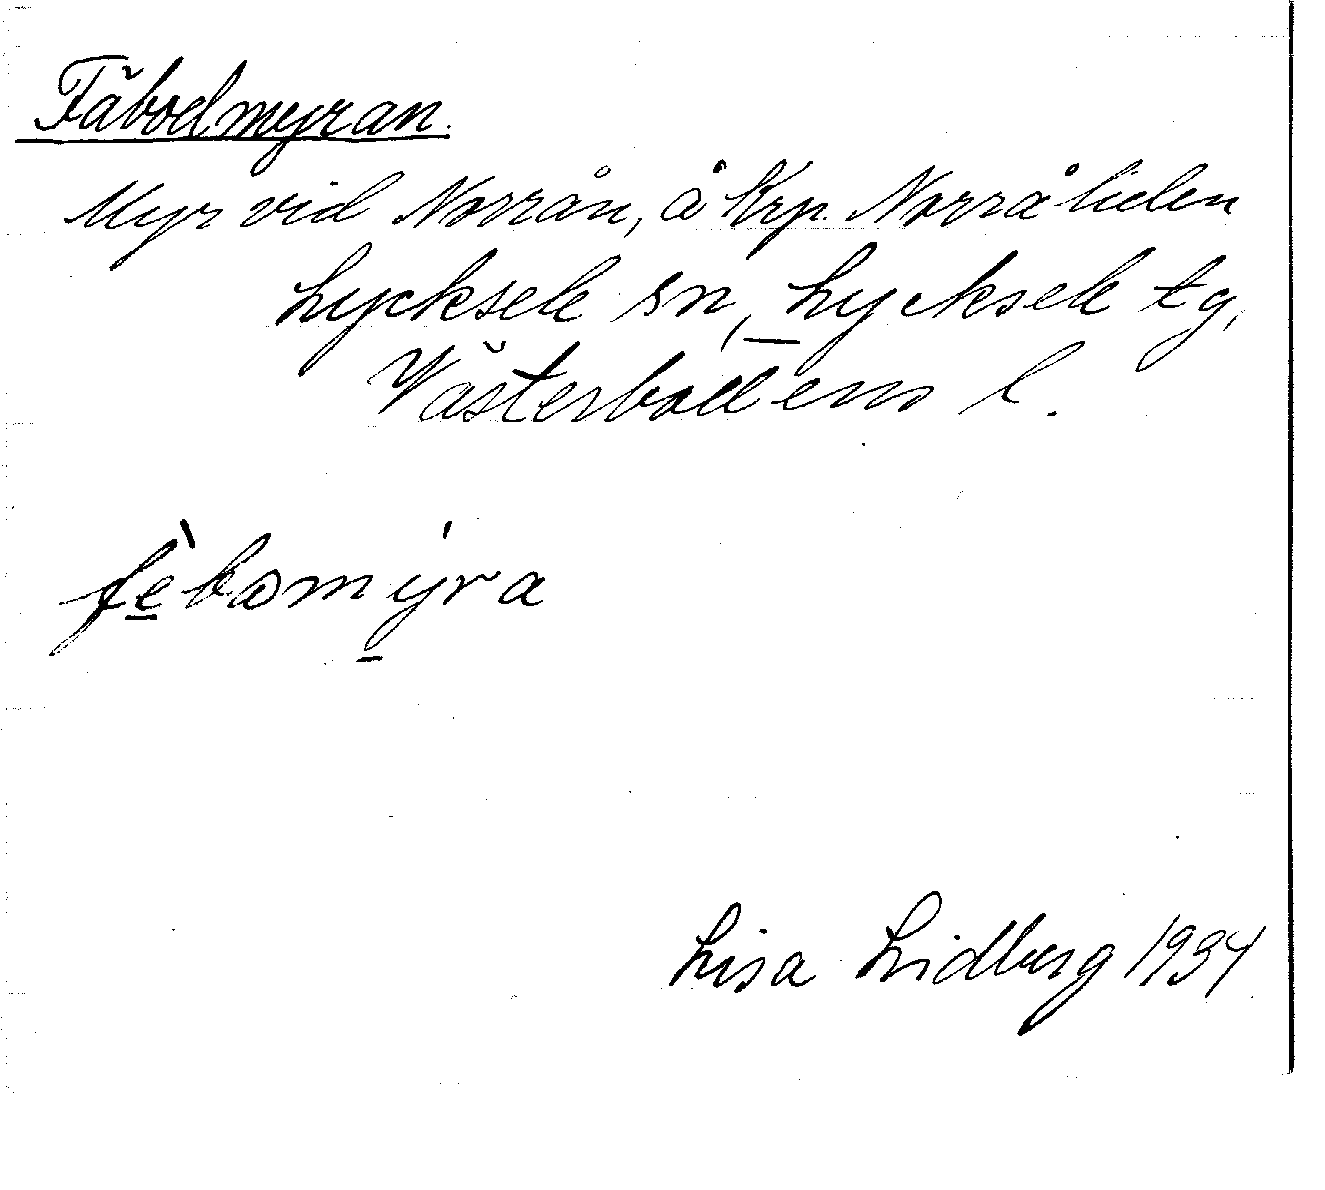 Fäbodmyran.
Myr vid Norrån, å Krp. Norråliden
Lycksele sn, Lycksele tg,
Västerbottens l.
fèbomýra
Lisa Lidberg 1934